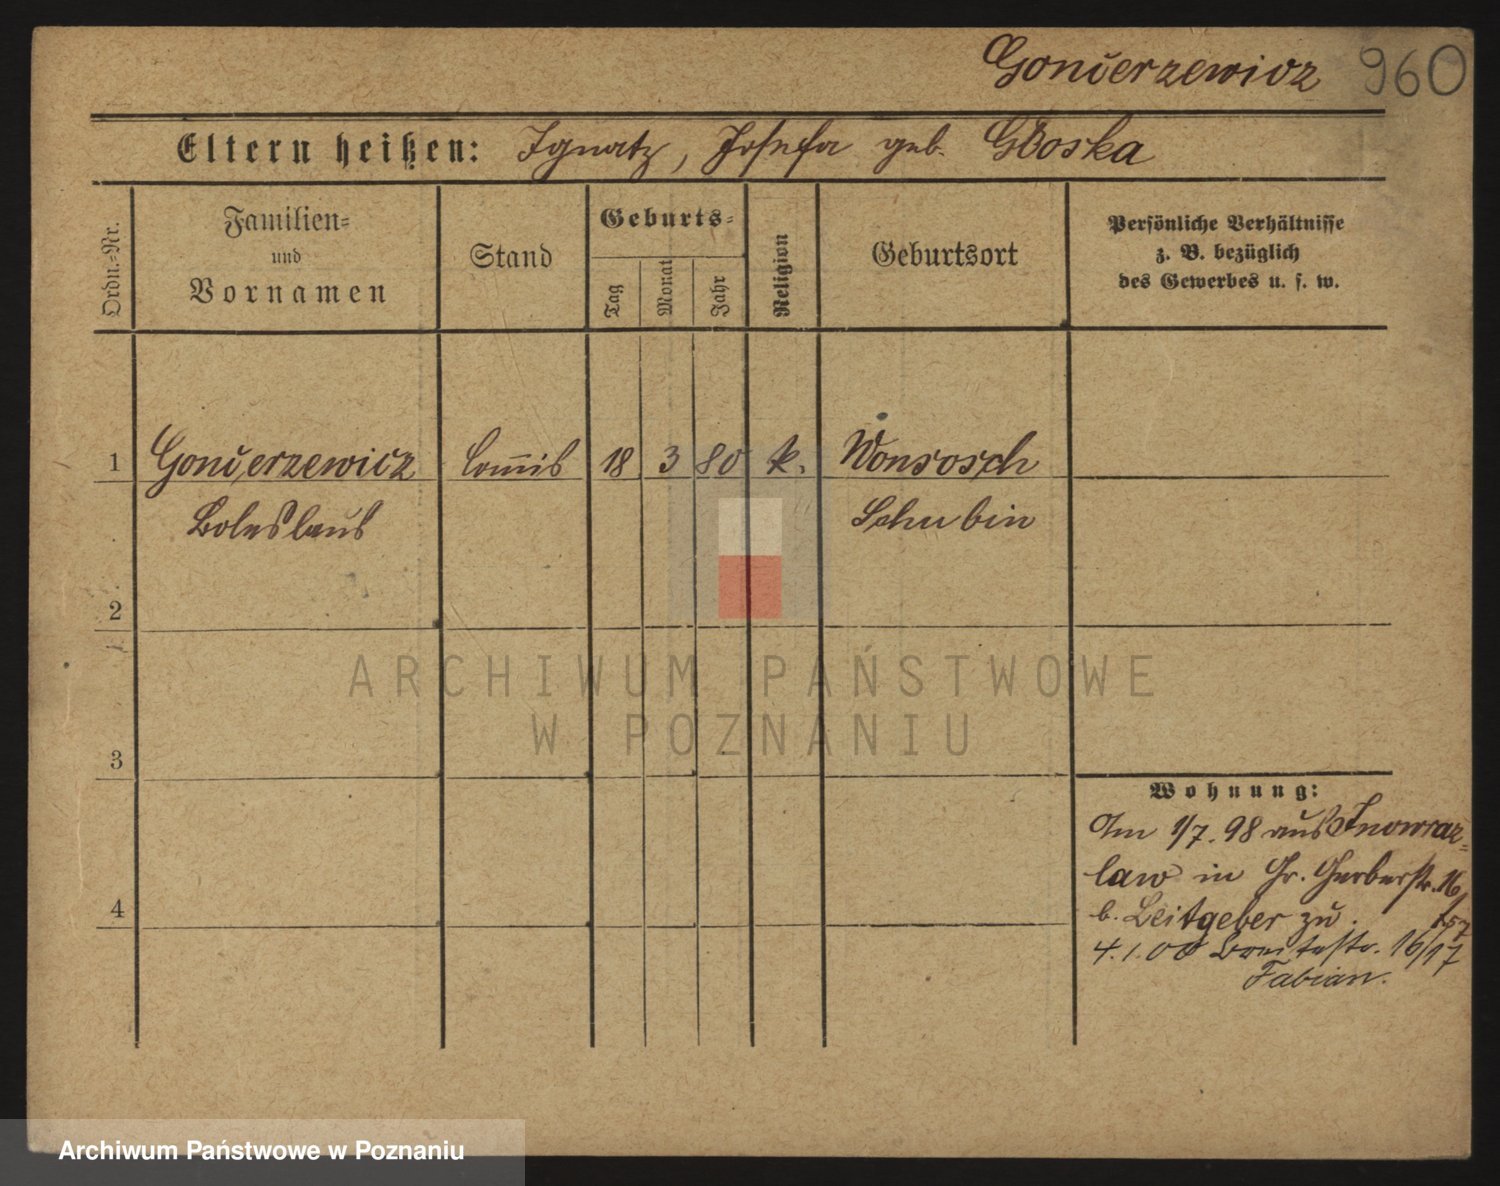 Gonŭerzewicz 960
Eltern heißen: Ignatz, Josefa geb. Głoska
Ordn.-Nr.
Familien-
und
Vornamen
Stand
Geburts-
Tag
Monat
Jahr
Religion
Geburtsort
Persönliche Verhältnisse
z. B. bezüglich
des Gewerbes u. s. w.
1 Gonŭerzewicz Com̅is 18 3 80 k. Wonsosch
Boleslaus Schubin
2
3
4
Wohnung:
Am 1/7. 98 aus Inowraz=
law in Gr. Gerberstr. 16
b. Leitgeber zu.
4.1.00 Breitestr. 16/17
Fabian.
ARCHIWUM PAŃSTWOWE
W POZNANIU
Archiwum Państwowe w Poznaniu